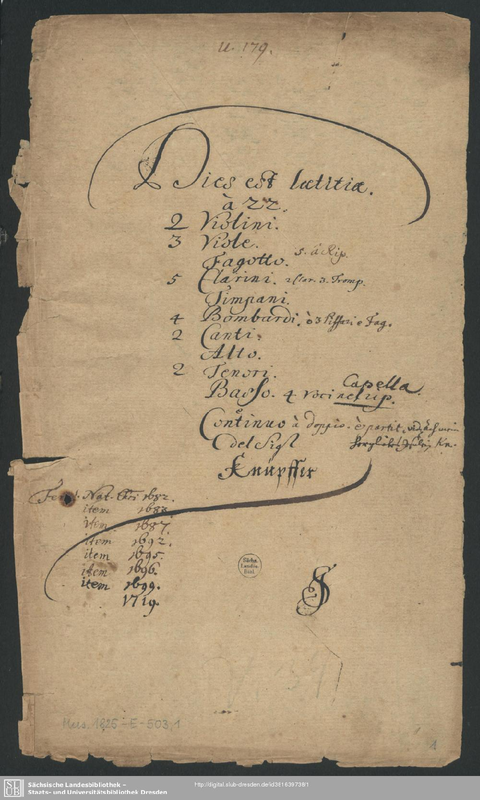 U. 179.
Dies est lætitiæ.
à 22.
2 Violini.
3 Viole.
Fagotto. 5. à Rip.
5 Clarini. 2 Clar. 3. Tromp.
Timpani.
4 Bombardi. ò 3 Piffari e Fag.
2 Canti.
Alto.
2 Tenori.
Basso. 4 Voci in Rip.
Capella.
Continuo à doppio. è partit.
del Sig.
Knüpffer
Fer. Nat. Chri 1682.
item 1683.
item 1687.
item 1692.
item 1695.
item 1696.
item 1699.
1719.
Sächs.
Landes.
Bibl.
Mus. 1825-E-503,1
1
SLUB
Sächsische Landesbibliothek –
Staats- und Universitätsbibliothek Dresden
http://digital.slub-dresden.de/id331639738/1